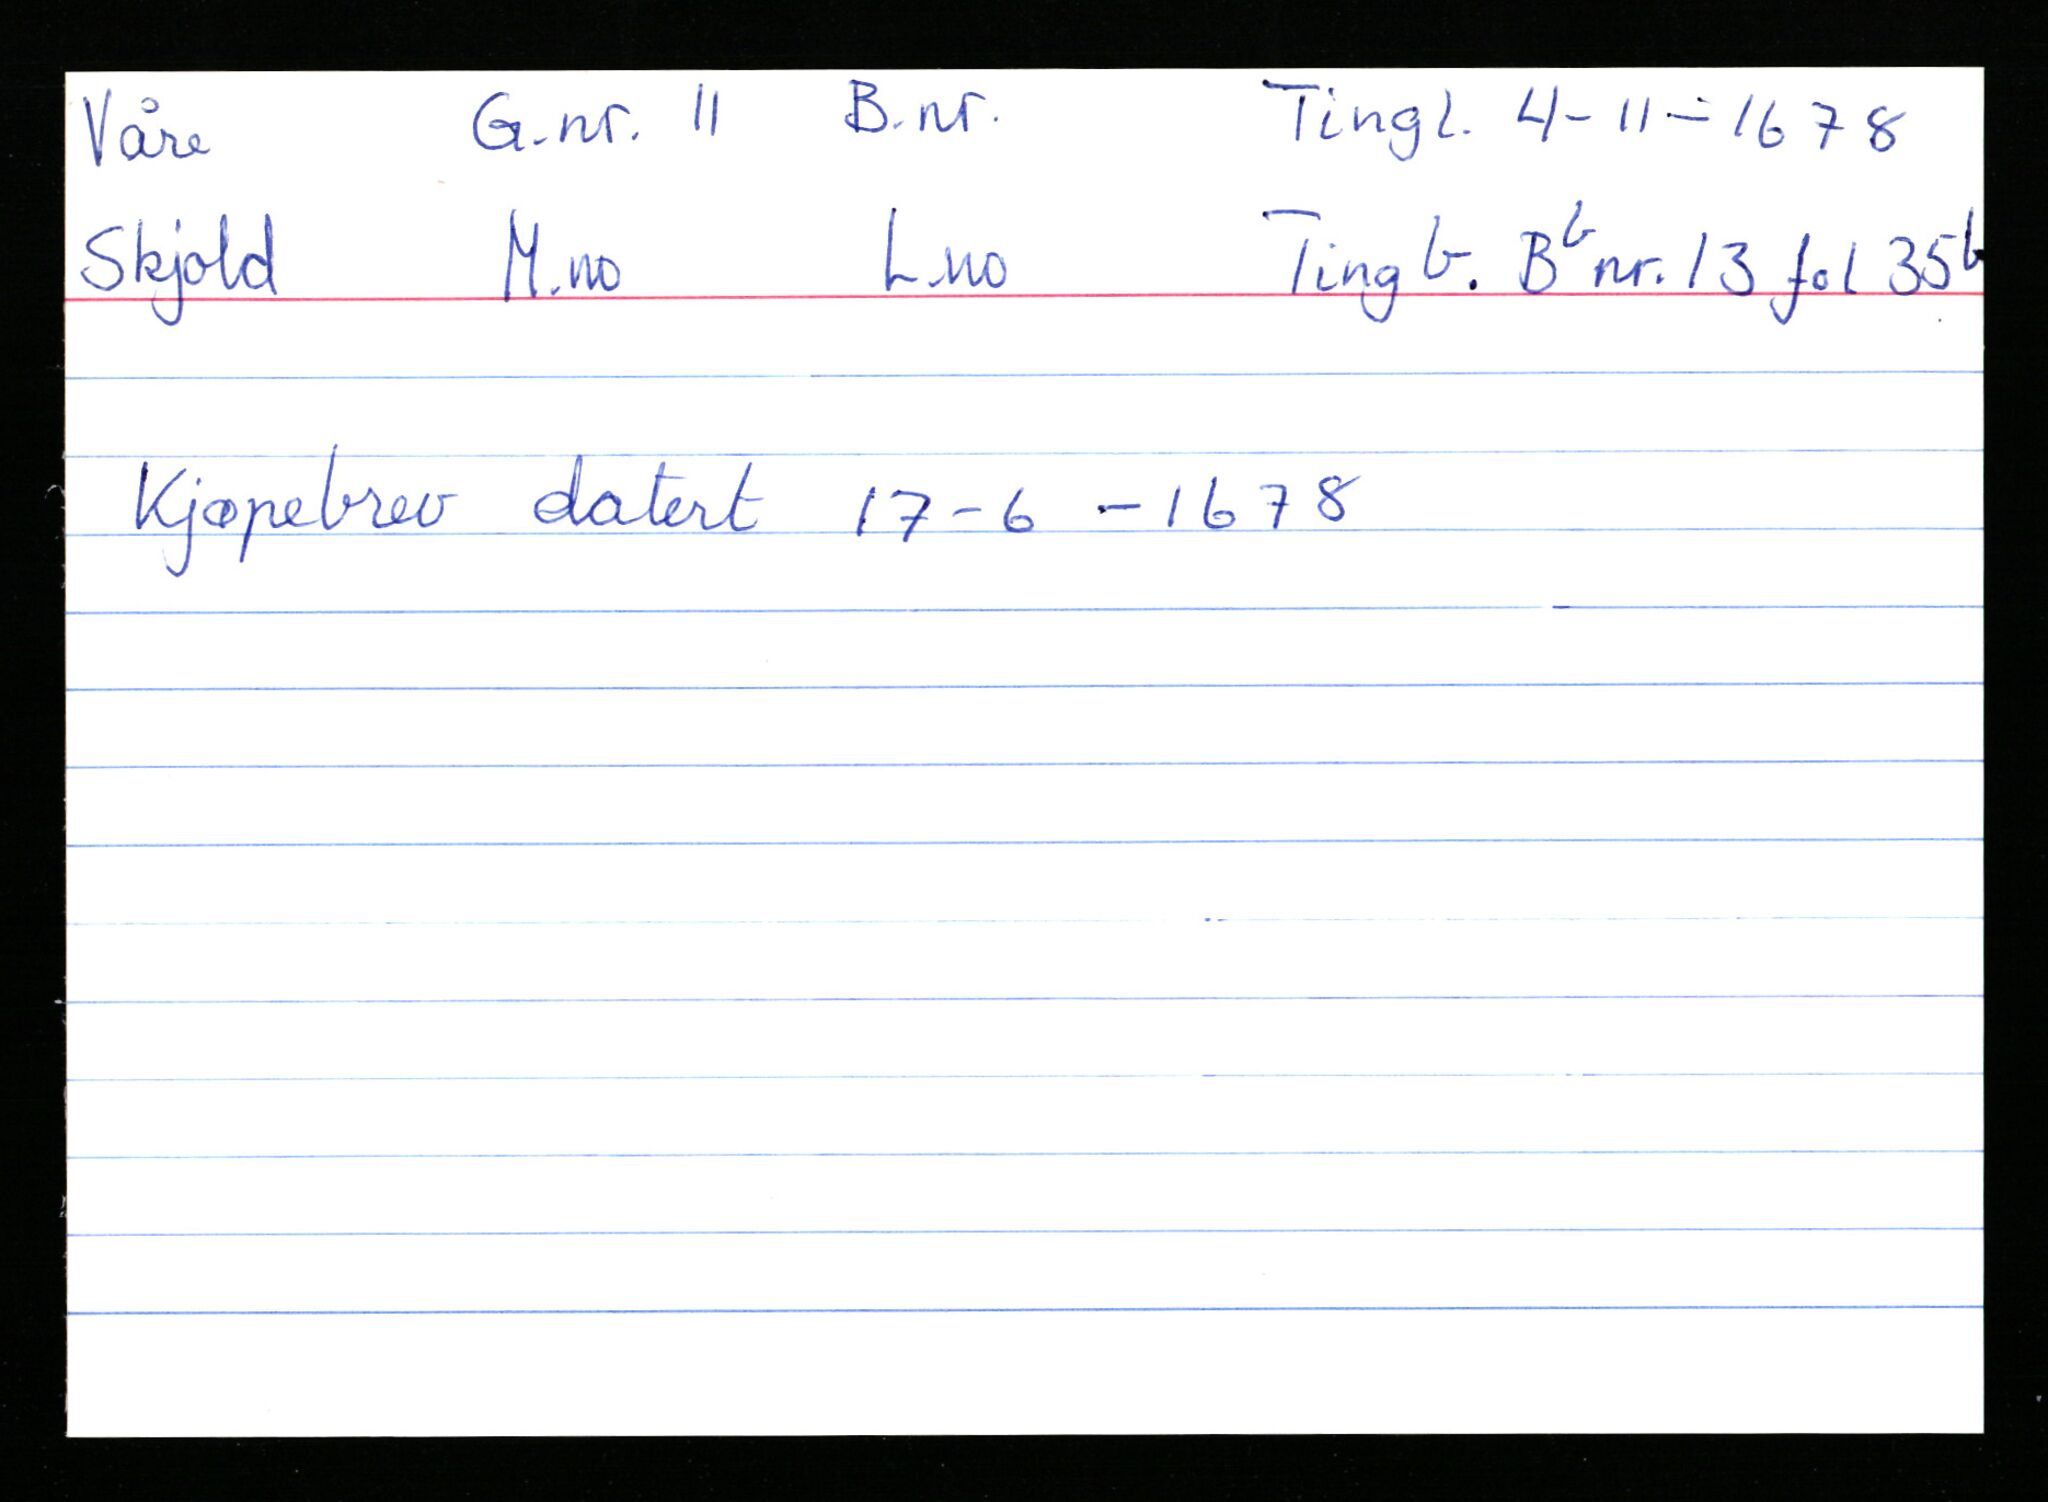 Våre G.nr. 11 B.nr. Tingl. 4-11-1678
Skjold M.no L.no Tingb. Bb nr. 13 fol 35b
Kjøpebrev datert 17-6-1678